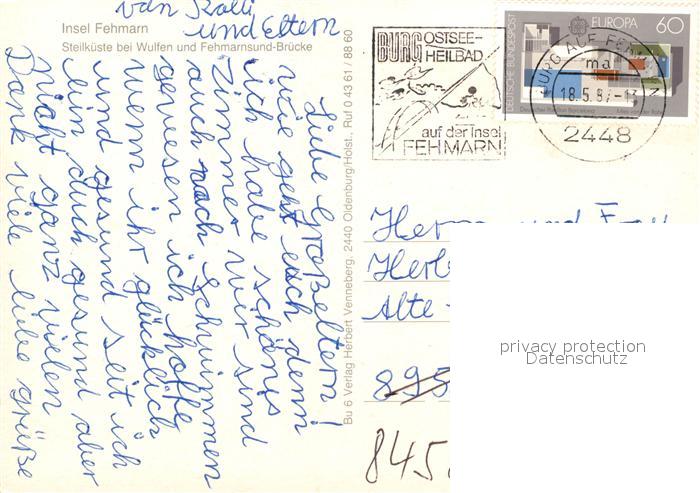 Insel Fehmarn
Steilküste bei Wulfen und Fehmarnsund-Brücke
Liebe Großeltern!
wie geht euch denn
ich habe schönes
Zimmer wir sind
auch nach Schwimmen
gewesen ich hoffe
wenn ihr glücklich
und gesund seit ich
bin auch gesund aber
nicht ganz vielen
Dank viele liebe grüße
von Kolli
und Eltern
Bu 6 Verlag Herbert Venneberg, 2440 Oldenburg/Holst., Ruf 0 43 61 / 88 60
BURG OSTSEE-
HEILBAD
auf der Insel
FEHMARN
DEUTSCHE BUNDESPOST
EUROPA 60
BURG AUF FEHMARN
ma
18.5.87-13
2448
Herrn und Frau
Alte
895
845
privacy protection
Datenschutz